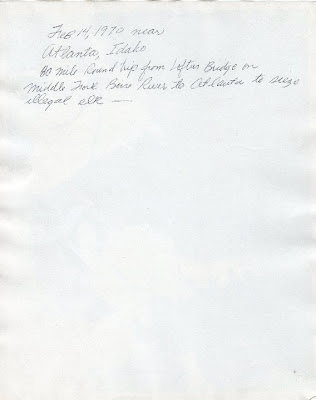 Feb 14, 1970 near
Atlanta, Idaho
80 mile Round trip from Loftus Bridge on
Middle Fork Boise River to Atlanta to seize
illegal elk —